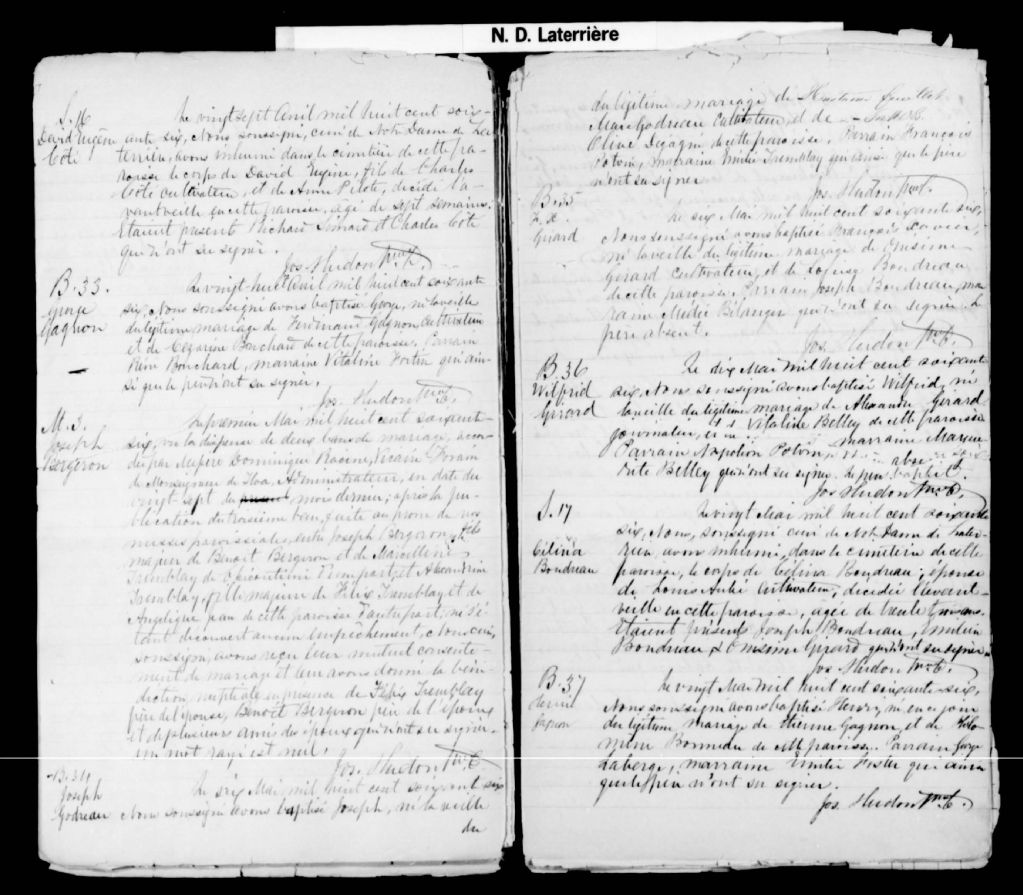 N. D. Laterrière
S. 16
David Eugène
Côté
Le vingt sept Avril mil huit cent soix-
ante six, Nous soussigné, curé de Notre Dame de La-
terrière, avons inhumé dans le cimetière de cette pa-
roisse le corps de David Eugène, fils de Charles
Côté cultivateur, et de Anne Pilote, décédé l'a-
vant veille en cette paroisse, agé de sept semaines.
Etaient présents Richard Simard et Charles Côté
qui n'ont su signer.
Jos. Hudon Ptre C.
B. 33.
George
Gagnon
Le vingt-huit Avril mil huit cent soixante
six, Nous soussigné avons baptisé George, né la veille
du légitime mariage de Ferdinand Gagnon Cultivateur
et de Cézarine Bouchard de cette paroisse. Parrain
Bouchard, marraine Vitaline Fortin qui ain-
si que le père n'ont su signer.
Jos. Hudon Ptre C.
M. 3.
Joseph
Bergeron
Le premier Mai mil huit cent soixante-
six, vu la dispense de deux bans de mariage, accor-
dée par Mr Dominique Racine, Vicaire Forain
de Monseigneur de Tloa, Administrateur, en date du
vingt sept du mois dernier; après la pu-
blication du troisième ban, faite au prône de nos
messes paroissiales, entre Joseph Bergeron, fils
majeur de Benoit Bergeron et de Marcelline
Tremblay de d'une part, et Alexandrine
Tremblay, fille majeure de Félix Tremblay et de
Angélique Jean de cette paroisse d'autre part; ne s'é-
tant découvert aucun empêchement, Nous curé,
soussigné, avons reçu leur mutuel consente-
ment de mariage et leur avons donné la béné-
diction nuptiale en présence de Félix Tremblay
père de l'épouse, Benoit Bergeron père de l'époux
et de plusieurs amis des époux qui n'ont su signer.
Un mot rayé est nul.
Jos. Hudon Ptre C.
B. 34
Joseph
Godreau
Le six Mai mil huit cent soixante six
Nous soussigné avons baptisé Joseph, né la veille
du
du légitime mariage de
Godreau Cultivateur, et de
Olive Degagné de cette paroisse. Parrain François
Potvin, marraine Emélie Tremblay qui ainsi que le père
n'ont su signer
Jos. Hudon Ptre C.
B. 35
F. X.
Girard
Le six Mai mil huit cent soixante six,
Nous soussigné avons baptisé François Xavier,
né la veille du légitime mariage de Onésime
Girard Cultivateur, et de Boudreau
de cette paroisse. Parrain Joseph Boudreau, mar-
raine Bélanger qui n'ont su signer. Le
père absent.
Jos. Hudon Ptre C.
B. 36
Wilfrid
Girard
Le dix Mai mil huit cent soixante
six, Nous soussigné avons baptisé Wilfrid, né
la veille du légitime mariage de Alexandre Girard
journalier, et de Vitaline Belley de cette paroisse
Parrain Napoléon Potvin, marraine Margue-
rite Belley qui n'ont su signer. Le père absent
Jos. Hudon Ptre C.
S. 17
Célina
Boudreau
Le vingt Mai mil huit cent soixante
six, Nous, soussigné curé de Notre Dame de Later-
rière, avons inhumé, dans le cimetière de cette
paroisse, le corps de Célina Boudreau, épouse
de Louis Aubé Cultivateur, décédée l'avant-
veille en cette paroisse, agée de trente trois ans.
Etaient présents Joseph Boudreau, Emilien
Boudreau & Onésime Girard qui n'ont su signer.
Jos. Hudon Ptre C.
B. 37
Henri
Gagnon
Le vingt Mai mil huit cent soixante-six,
Nous soussigné avons baptisé Henry, né en ce jour
du légitime mariage de Etienne Gagnon, et de Philo-
mène Bonneau de cette paroisse. Parrain George
Laberge, marraine Emélie Fortin qui ainsi
que le père n'ont su signer.
Jos. Hudon Ptre C.